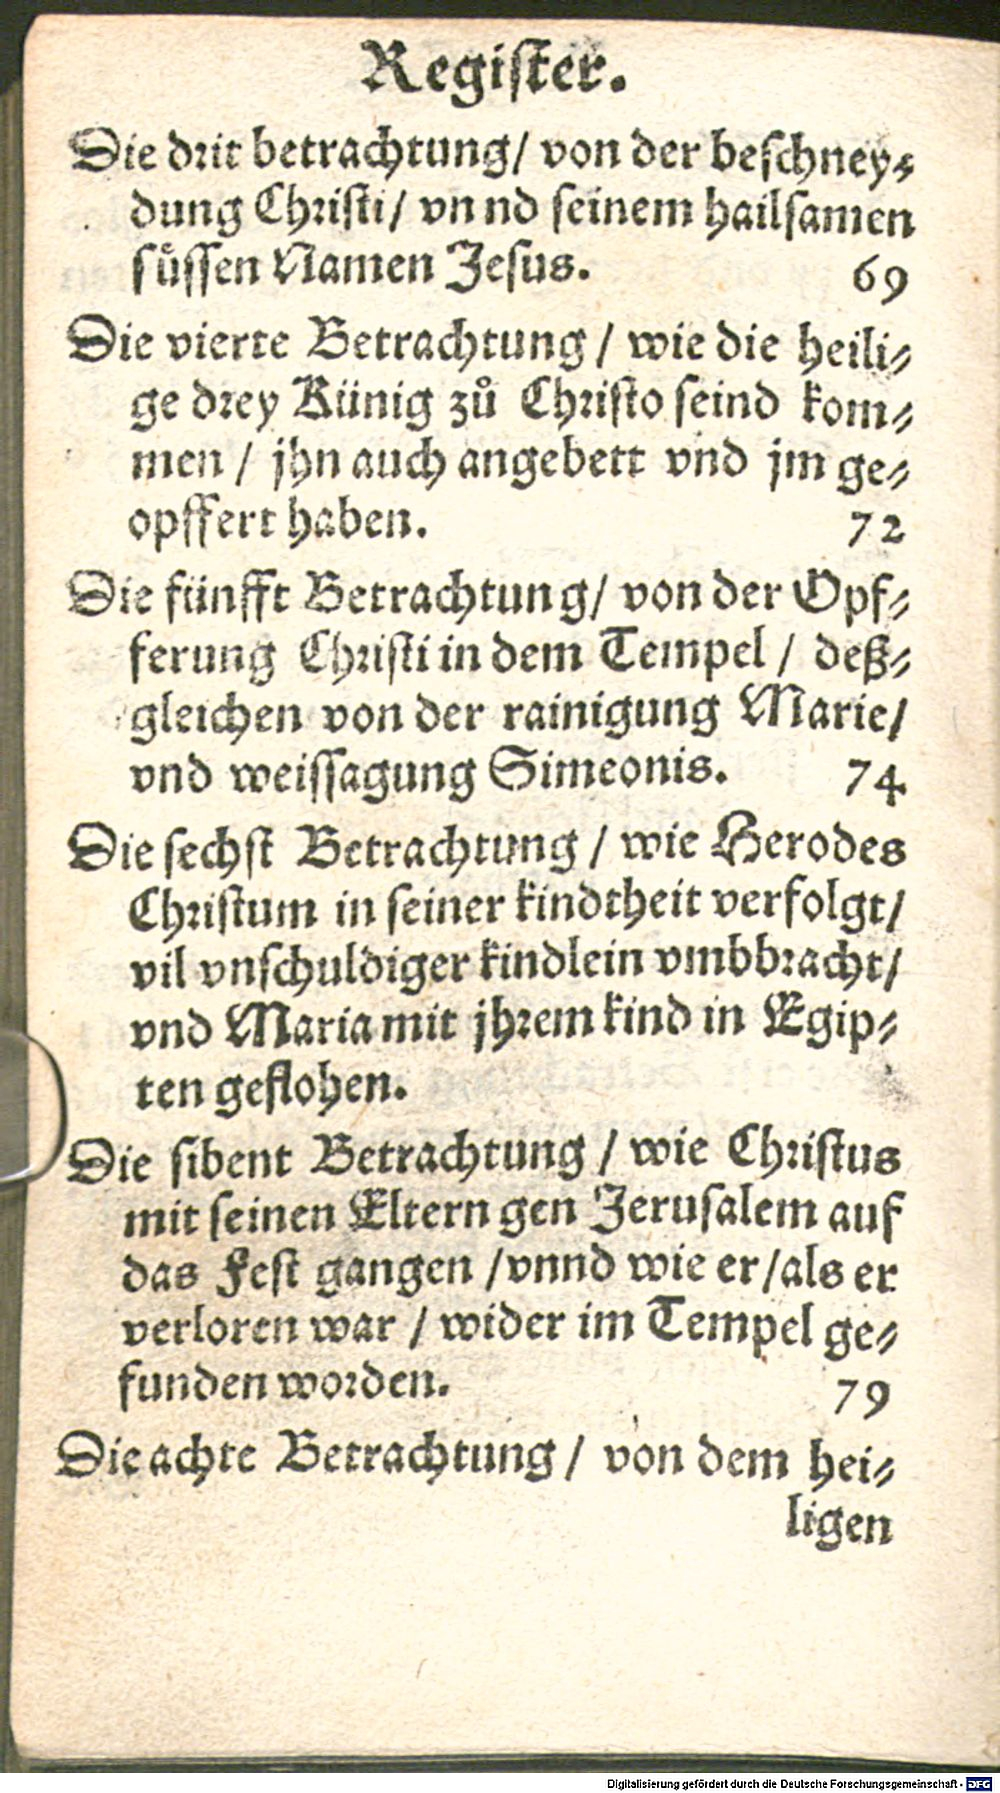 Register.
Die drit betrachtung/ von der beschney⸗
dung Christi/ vn nd seinem hailsamen
suͤssen Namen Jesus. 69
Die vierte Betrachtung / wie die heili⸗
ge drey Künig zů Christo seind kom⸗
men / jhn auch angebett vnd jm ge⸗
opffert haben. 72
Die fünfft Betrachtung/ von der Opf⸗
ferung Christi in dem Tempel / deß⸗
gleichen von der rainigung Marie/
vnd weissagung Simeonis. 74
Die sechst Betrachtung / wie Herodes
Christum in seiner kindtheit verfolgt/
vil vnschuldiger kindlein vmbbracht/
vnd Maria mit jhrem kind in Egip⸗
ten geflohen.
Die sibent Betrachtung / wie Christus
mit seinen Eltern gen Jerusalem auf
das Fest gangen /vnnd wie er/als er
verloren war / wider im Tempel ge⸗
funden worden. 79
Die achte Betrachtung / von dem hei⸗
ligen
Digitalisierung gefördert durch die Deutsche Forschungsgemeinschaft - DFG